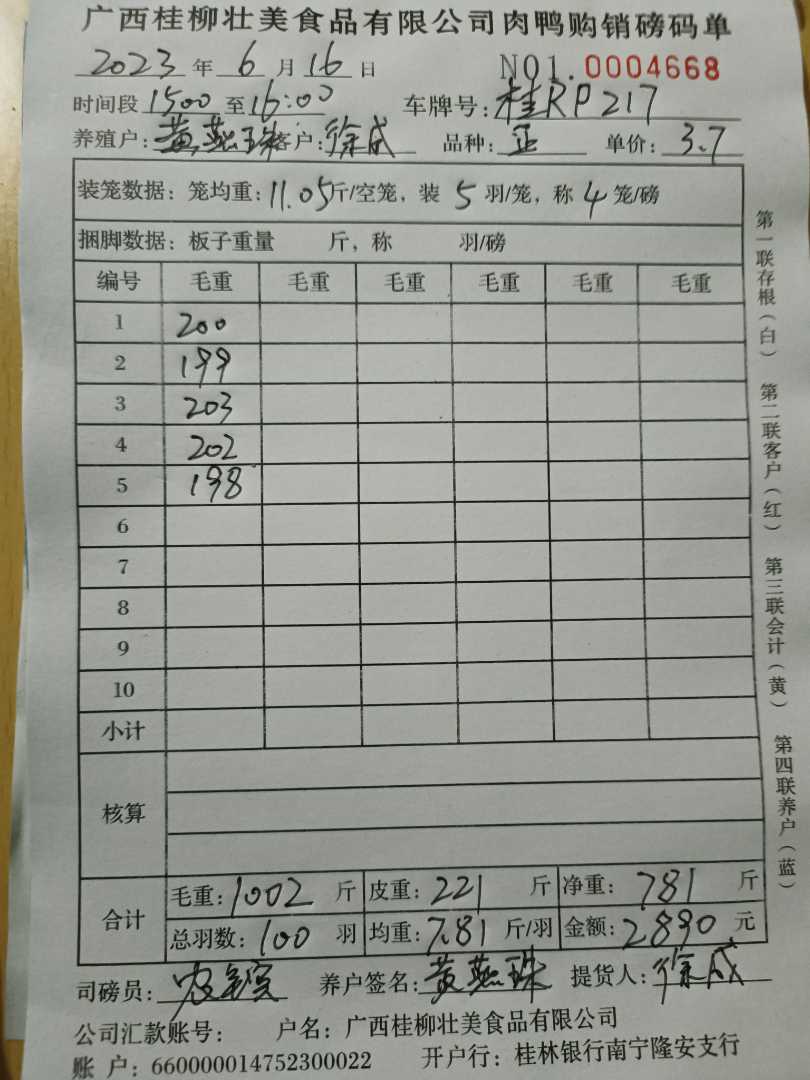 广西桂柳壮美食品有限公司肉鸭购销磅码单
2023年6月16日 NO1.0004668
时间段1500至16:00 车牌号:桂RP217
养殖户:黄燕珠客户:徐成 品种:正 单价:3.7
装笼数据:笼均重:11.05斤/空笼,装5羽/笼,称4笼/磅
捆脚数据:板子重量 斤,称 羽/磅
编号 毛重 毛重 毛重 毛重 毛重 毛重
1 200
2 199
3 203
4 202
5 198
6
7
8
9
10
小计
核算
合计 毛重:1002斤 皮重:221斤 净重:781斤
总羽数:100羽 均重:7.81斤/羽 金额:2890元
司磅员: 养户签名:黄燕珠 提货人:徐成
公司汇款账号: 户名:广西桂柳壮美食品有限公司
账户:660000014752300022 开户行:桂林银行南宁隆安支行
第一联存根(白) 第二联客户(红) 第三联会计(黄) 第四联养户(蓝)